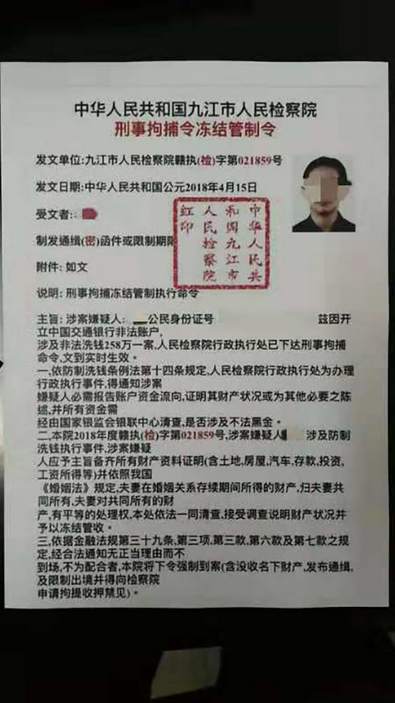 中华人民共和国九江市人民检察院
刑事拘捕令冻结管制令
发文单位:九江市人民检察院赣执(检)字第021859号
发文日期:中华人民共和国公元2018年4月15日
受文者:
制发通缉(密)函件或限制期限
附件: 如文
说明: 刑事拘捕冻结管制执行命令
中华人民共
和国九江市
人民检察院
红印
主旨: 涉案嫌疑人: 公民身份证号 兹因开
立中国交通银行非法账户,
涉及非法洗钱258万一案,人民检察院行政执行处已下达刑事拘捕
命令,文到实时生效。
一、依防制洗钱条例法第十四条规定,人民检察院行政执行处为办理
行政执行事件,得通知涉案
嫌疑人必需报告账户资金流向,证明其财产状况或为其他必要之陈
述,并所有资金需
经由国家银监会银联中心清查,是否涉及不法黑金。
二、本院2018年度赣执(检)字第021859号,涉案嫌疑人 涉及防制
洗钱执行事件,涉案嫌疑
人应予主旨备齐所有财产资料证明(含土地,房屋,汽车,存款,投资,
工资所得等)并依照我国
《婚姻法》规定,夫妻在婚姻关系存续期间所得的财产,归夫妻共
同所有,夫妻对共同所有的财
产,有平等的处理权,本处依法一同清查,接受调查说明财产状况并
予以冻结管收。
三、依据金融法规第三十九条,第三项,第三款,第六款及第七款之规
定,经合法通知无正当理由而不
到场,不为配合者,本院将下令强制到案(含没收名下财产,发布通缉,
及限制出境并得向检察院
申请拘提收押禁见)。